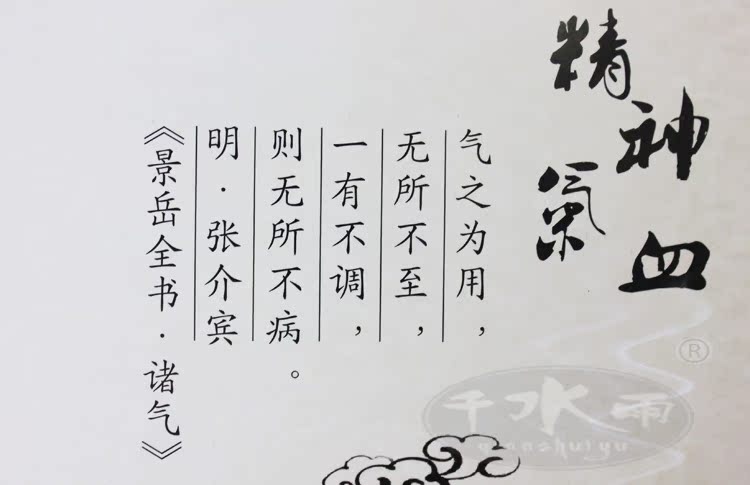 精神
氣血
气之为用，
无所不至，
一有不调，
则无所不病。
明·张介宾
《景岳全书·诸气》
®
千水雨
qianshuiyu